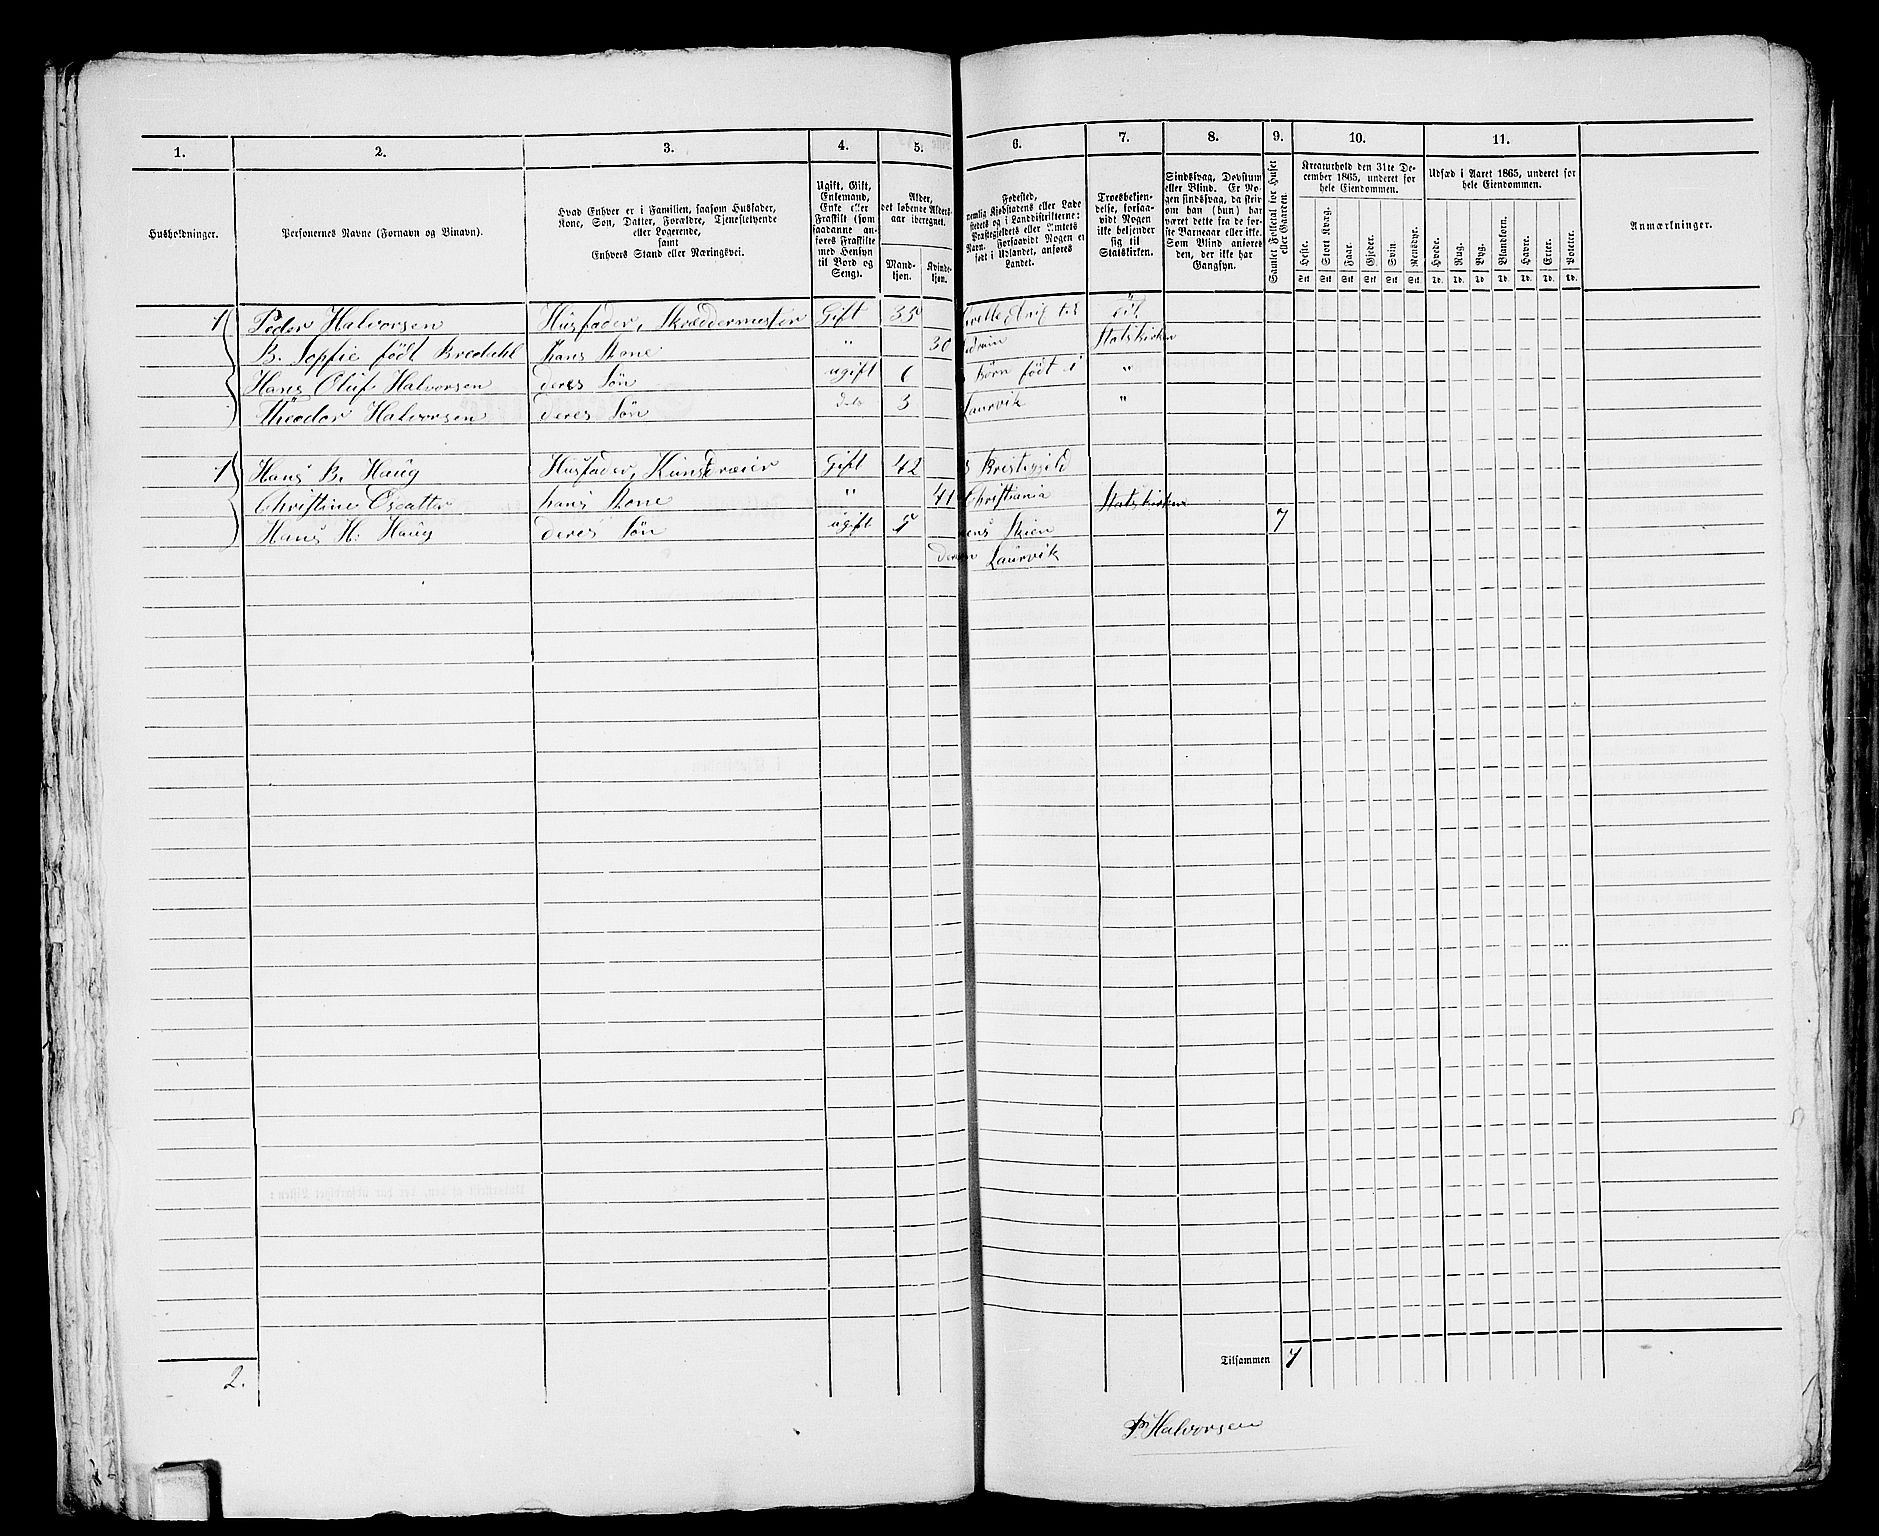 1. 2. 3. 4. 5. 6. 7. 8. 9. 10. 11.
Husholdninger.
Personernes Navne (Fornavn og Tilnavn).
Hvad Enhver er i Familien, saasom Husfader,
Kone, Søn, Datter, Forældre, Tjenestetyende
eller Logerende,
samt
Enhvers Stand eller Næringsvei.
Ugift, Gift,
Enkemand,
Enke eller
Fraskilt (som
saadanne an-
føres Fraskilte
med Hensyn
til Bord og
Seng).
Alder,
det løbende Alders-
aar iberegnet.
Mand-
kjøn.
Kvinde-
kjøn.
Fødested,
nemlig Kjøbstadens eller Lade-
stedets og i Landdistrikterne:
Præstegjeldets eller Amtets
Navn. Forsaavidt Nogen er
født i Udlandet, anføres
Landet.
Troesbekjen-
delse, forsaa-
vidt Nogen
ikke bekjender
sig til
Statskirken.
Sindssvag, Døvstum
eller Blind. Er No-
gen sindssvag, da skriv
om han (hun) har
været dette fra de før-
ste Barneaar eller ikke.
Som Blind anføres
den, der ikke har
Gangsyn.
Samlet Folketal for Huset
eller Gaarden.
Kreaturhold den 31te De-
cember 1865, underet for
hele Eiendommen.
Heste. Stort Kvæg. Faar. Gjeder. Svin. Rensdyr.
Stk. Stk. Stk. Stk. Stk. Stk.
Udsæd i Aaret 1865, underet for
hele Eiendommen.
Hvede. Rug. Byg. Blandkorn. Havre. Erter. Poteter.
Td. Td. Td. Td. Td. Td. Td.
Anmærkninger.
1 Peder Halvorsen Husfader, Skræddermester Gift 35
B. Sophie født hans Kone " 30 Statskirken
Hans Oluf Halvorsen deres Søn ugift 6 Børn født i "
Theodor Halvorsen deres Søn 3 Laurvik "
1 Hans B. Haug Husfader, Kunstdreier Gift 42
Christine hans Kone " 41 Christiania Statskirken
Hans H. Haug deres Søn ugift 5 Skien 7
Laurvik
Tilsammen 7
2.
P. Halvorsen